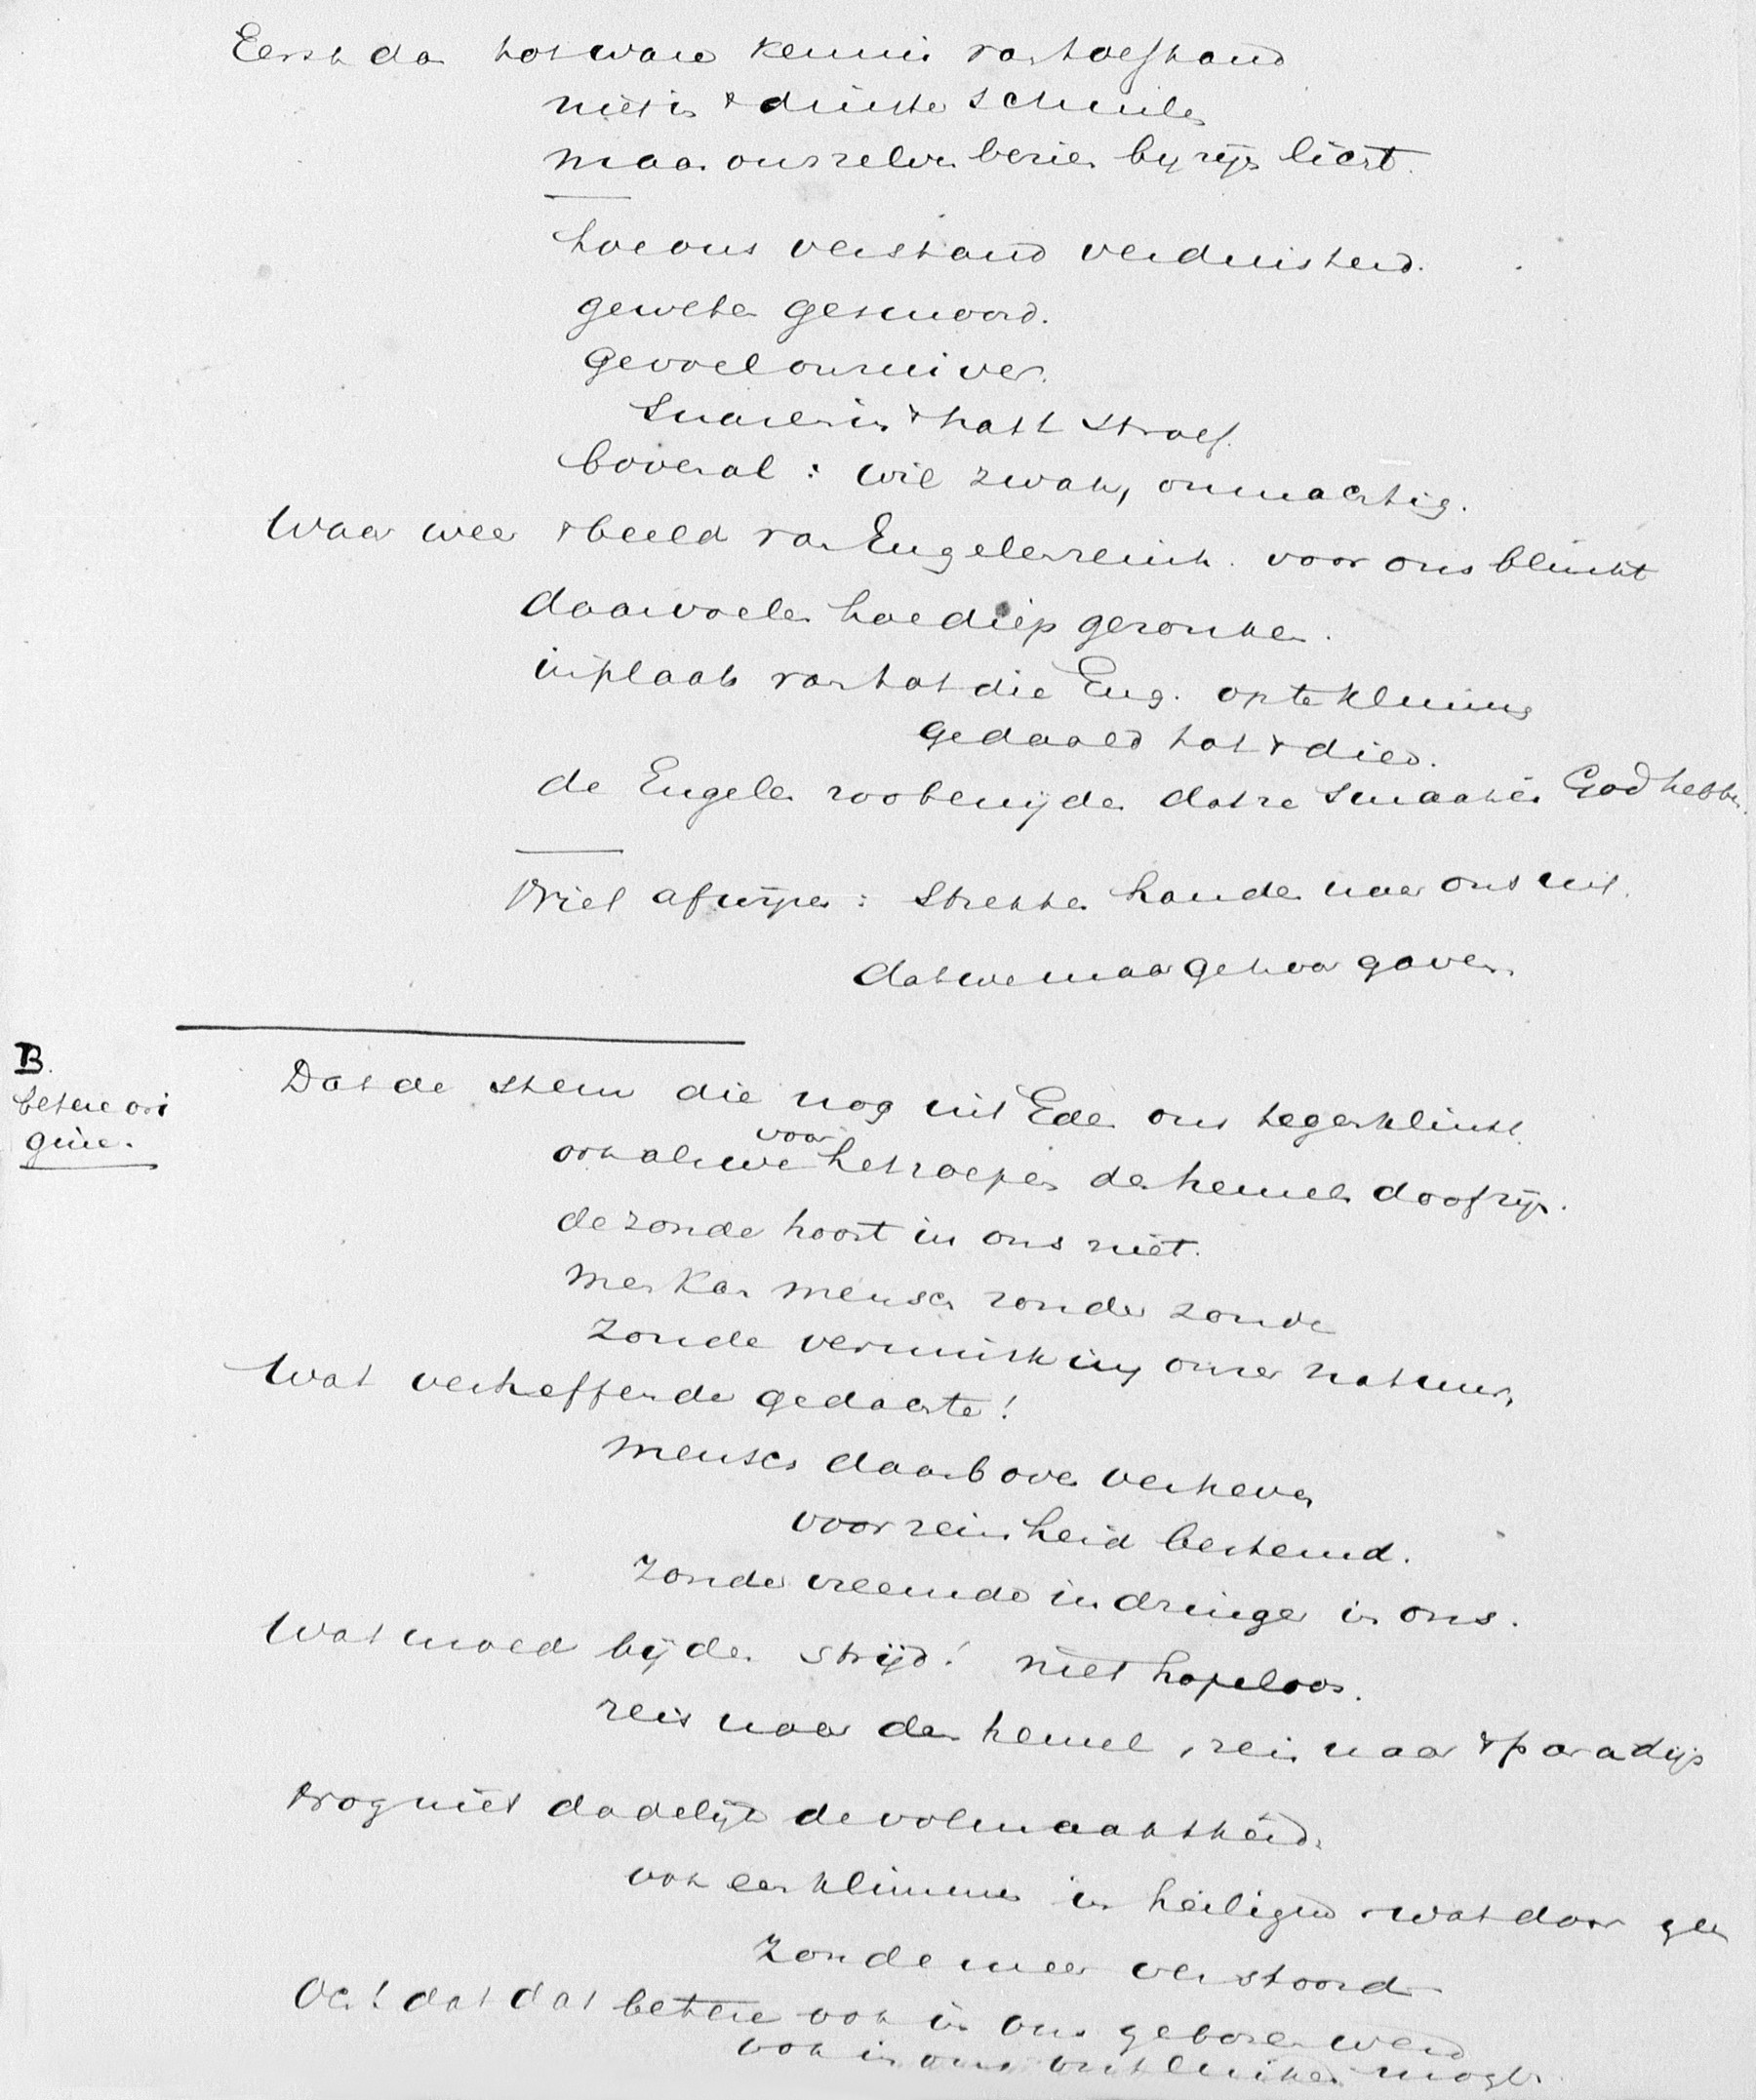 Eerst dan tot ware kennis van toestand
niet in 't duister schuilen
maar ons zelven bezien bij zijn licht.
hoe ons verstand verduisterd.
geweten gesmoord.
gevoel onzuiver.
Smaak in 't hart straf.
bovenal: wil zwak, onmachtig.
Waar weer 't beeld van Engelenreinh. voor ons blinkt
daar voelen hoe diep gezonken.
in plaats van tot die Eng. op te klimmen
gedaald tot 't dier.
de Engelen zoo benijden dat ze smaak in God hebben.
Niet afwijzen: strekken handen naar ons uit.
dat we maar gehoor gaven.
B.
betere ori
gine.
Dat de stem die nog uit Eden ons tegenklinkt
voor
ook al we het roepen der hemelen doof zijn.
de zonde hoort in ons niet.
men kan mensch zonder zonde
zonde verminking onzer natuur,
Wat verheffende gedachte!
mensch daarboven verheven
voor reinheid bestemd.
Zonde vreemde indringer in ons.
Wat moed bij den strijd! niet hopeloos.
reis naar den hemel, reis naar 't paradijs
Nog niet dadelijk de volmaaktheid.
ook een klimmen in heiligh wat door geen
zonde meer verstoord
Och dat dat betere ook in ons geboren werd
ook in ons ontluiken mogt.